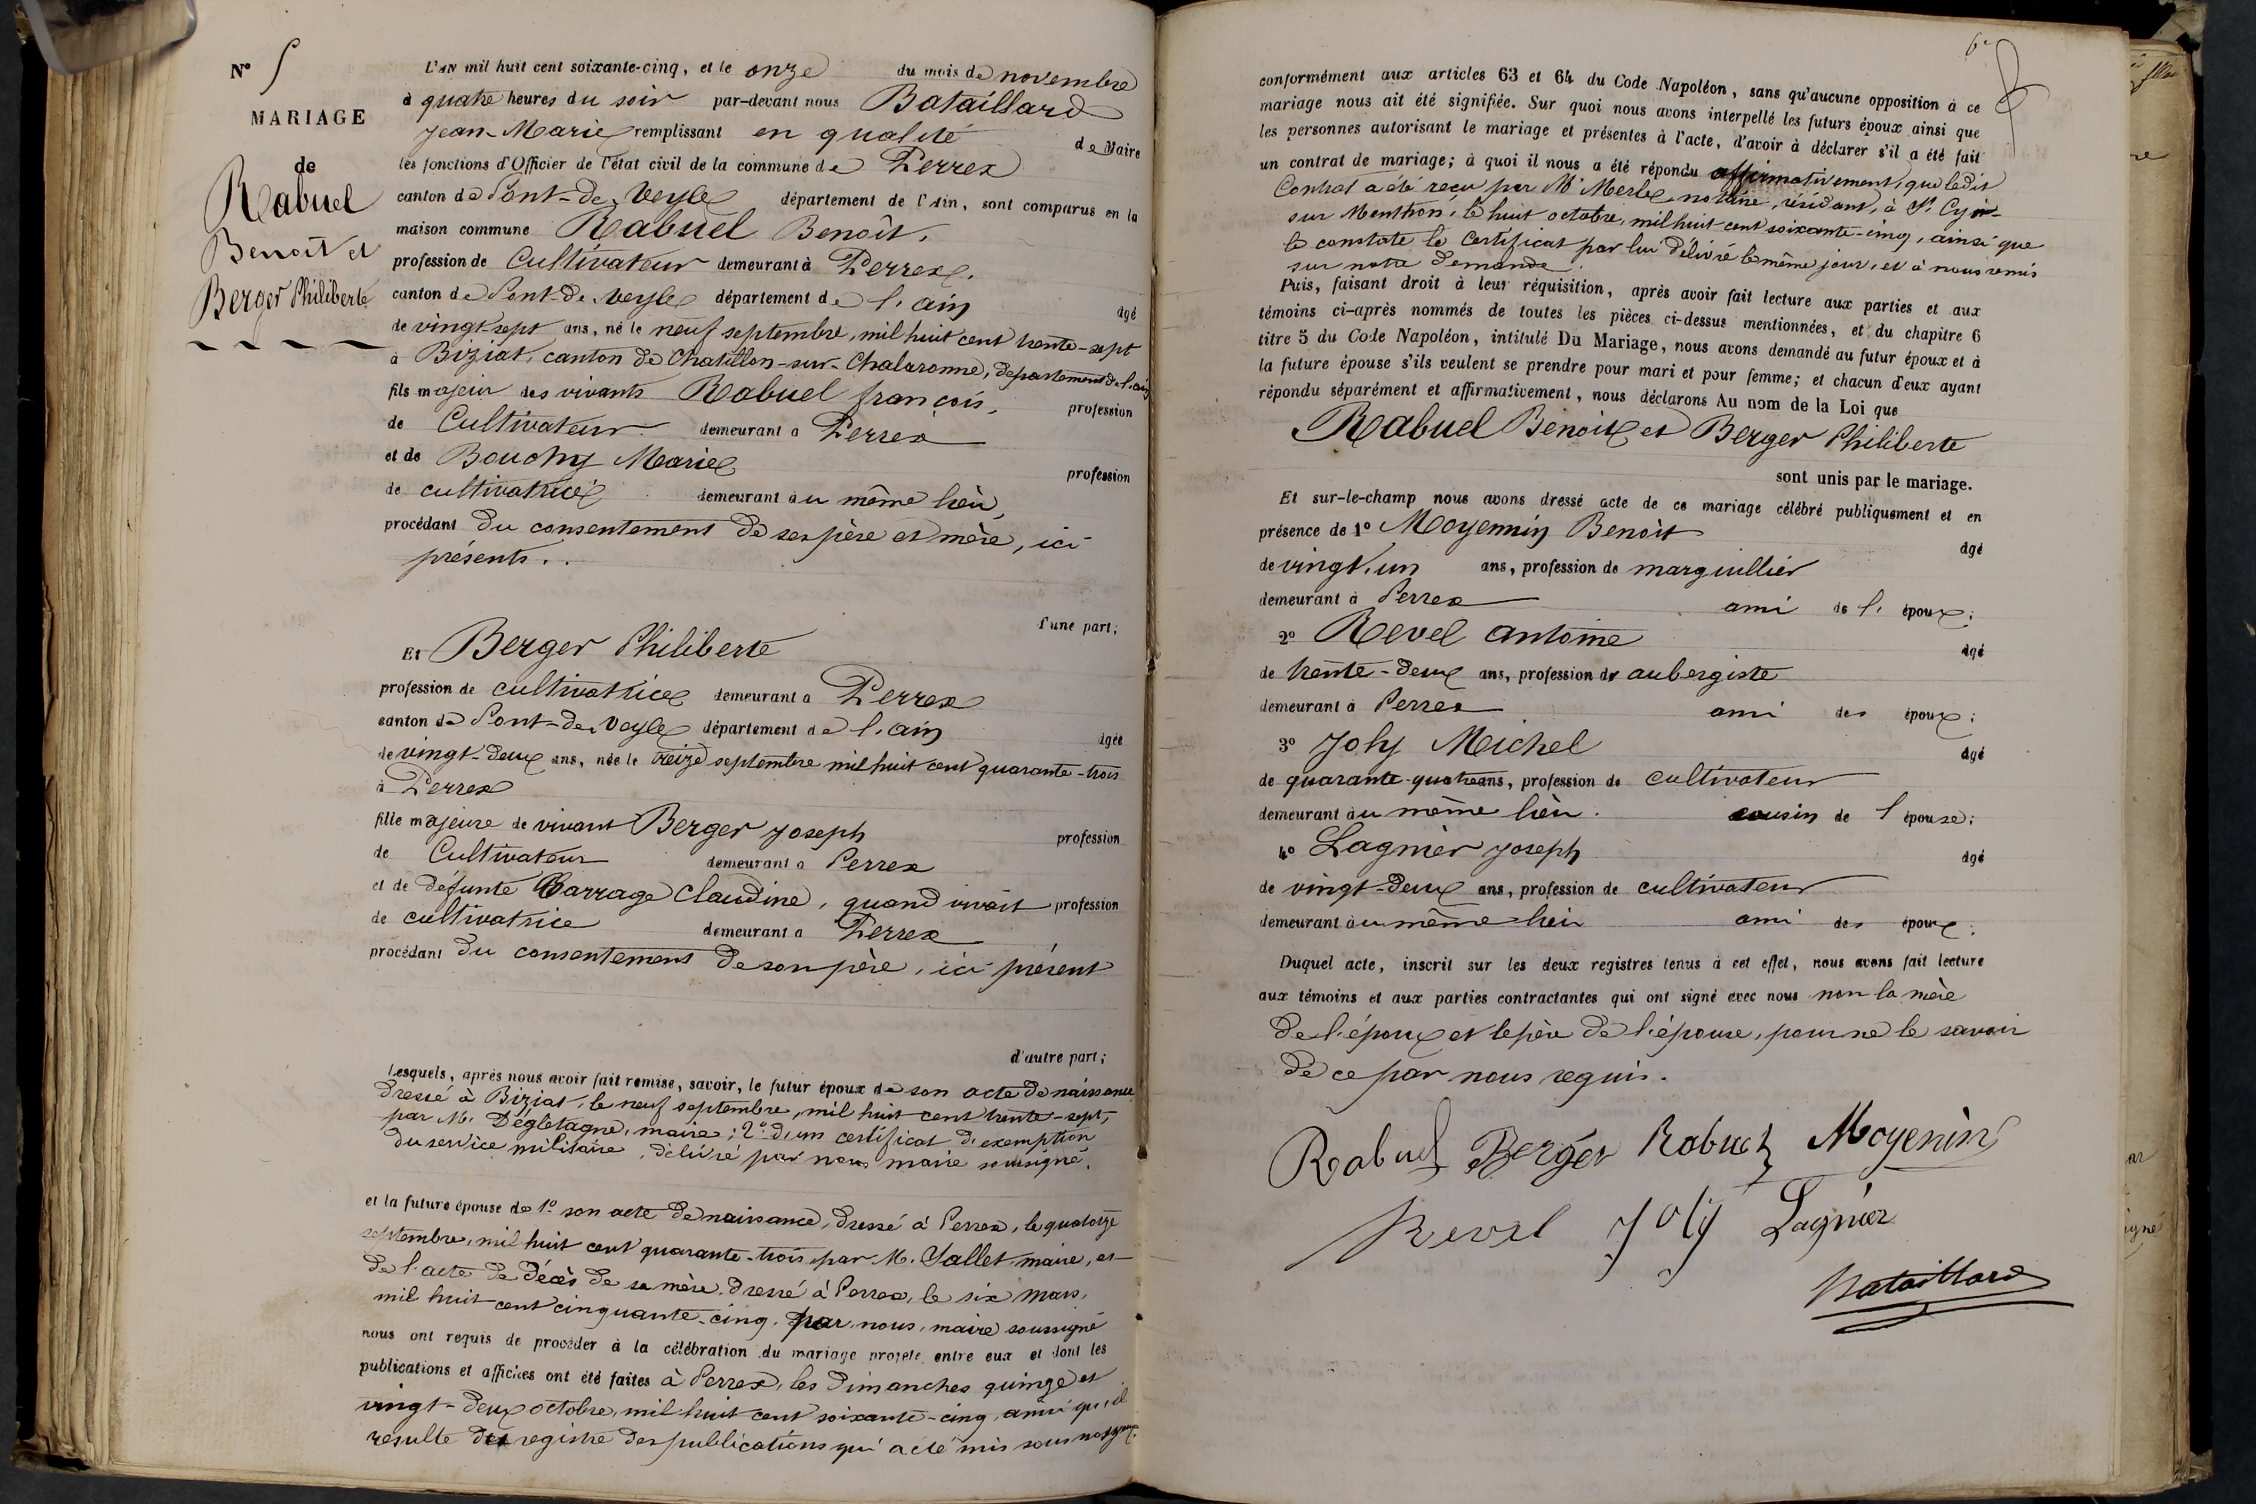 N° 5
MARIAGE
de
Rabuel
Benoît et
Berger Philiberte
L'AN mil huit cent soixante-cinq, et le onze du mois de novembre
à quatre heures du soir par-devant nous Bataillard
Jean-Marie remplissant en qualité de Maire
les fonctions d'Officier de l'état civil de la commune de Perrex
canton de Pont-de-Veyle département de l'Ain, sont comparus en la
maison commune Rabuel Benoît,
profession de Cultivateur demeurant à Perrex,
canton de Pont-de-Veyle département de l'ain âgé
de vingt sept ans, né le neuf septembre, mil huit cent trente-sept
à Biziat, canton de Chatillon-sur-Chalaronne, département de l'ain
fils majeur des vivants Rabuel françois, profession
de Cultivateur demeurant à Perrex
et de Bouchy Marie profession
de cultivatrice demeurant au même lieu,
procédant du consentement de ses père et mère, ici
présents.
d'une part;
Et Berger Philiberte
profession de cultivatrice demeurant à Perrex
canton de Pont-de-Veyle département de l'ain âgée
de vingt-deux ans, née le treize septembre mil huit cent quarante-trois
à Perrex
fille majeure de vivant Berger Joseph profession
de Cultivateur demeurant à Perrex
et de défunte Barrage Claudine, quand vivait profession
de cultivatrice demeurant à Perrex
procédant du consentement de son père, ici présent
d'autre part;
Lesquels, après nous avoir fait remise, savoir, le futur époux de son acte de naissance
dressé à Biziat, le neuf septembre, mil huit cent trente-sept,
par M. Dégletagne, maire; 2° d'un certificat d'exemption
du service militaire, délivré par nous maire soussigné.
et la future épouse de 1° son acte de naissance, dressé à Perrex, le quatorze
septembre, mil huit cent quarante-trois, par M. Sallet, maire, et
de l'acte de décès de sa mère, dressé à Perrex, le six mars,
mil huit cent cinquante-cinq, par nous, maire soussigné
nous ont requis de procéder à la célébration du mariage projeté entre eux et dont les
publications et affiches ont été faites à Perrex, les dimanches quinze et
vingt-deux octobre, mil huit cent soixante-cinq, ainsi qu'il
résulte du registre des publications qui a été mis sous nos yeux,
6
conformément aux articles 63 et 64 du Code Napoléon, sans qu'aucune opposition à ce
mariage nous ait été signifiée. Sur quoi nous avons interpellé les futurs époux ainsi que
les personnes autorisant le mariage et présentes à l'acte, d'avoir à déclarer s'il a été fait
un contrat de mariage; à quoi il nous a été répondu affirmativement, que ledit
Contrat a été reçu par Mr Merle, notaire, résidant, à St Cyr-
sur Menthon, le huit octobre, mil huit cent soixante-cinq, ainsi que
le constate le Certificat par lui délivré le même jour, et à nous remis
sur notre demande.
Puis, faisant droit à leur réquisition, après avoir fait lecture aux parties et aux
témoins ci-après nommés de toutes les pièces ci-dessus mentionnées, et du chapitre 6
titre 5 du Code Napoléon, intitulé Du Mariage, nous avons demandé au futur époux et à
la future épouse s'ils veulent se prendre pour mari et pour femme; et chacun d'eux ayant
répondu séparément et affirmativement, nous déclarons Au nom de la Loi que
Rabuel Benoit et Berger Philiberte
sont unis par le mariage.
Et sur-le-champ nous avons dressé acte de ce mariage célébré publiquement et en
présence de 1° Moyennin Benoit âgé
de vingt-un ans, profession de marguillier
demeurant à Perrex ami de l' époux;
2° Revel antoine âgé
de trente-deux ans, profession de aubergiste
demeurant à Perrex ami des époux;
3° Joly Michel âgé
de quarante-quatre ans, profession de cultivateur
demeurant au même lieu. cousin de l épouse;
4° Lagnier Joseph âgé
de vingt-deux ans, profession de cultivateur
demeurant au même lieu ami des époux.
Duquel acte, inscrit sur les deux registres tenus à cet effet, nous avons fait lecture
aux témoins et aux parties contractantes qui ont signé avec nous non la mère
de l'époux et le père de l'épouse, pour ne le savoir
de ce par nous requis.
Rabuel Berger Rabuel Moyenin
Revel Joly Lagnier
Bataillard